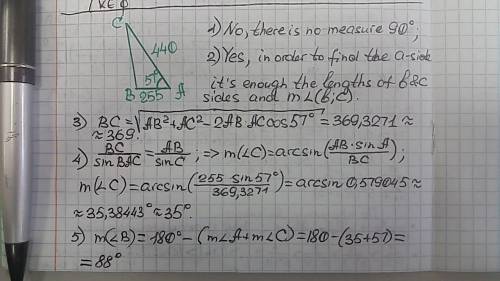 C
440
5°
B 255 A
1) No, there is no measure 90°;
2) Yes, in order to find the a-side
it's enough the lengths of b&c
sides and m∠(b;c).
3) BC = √AB²+AC²−2AB·AC cos57° = 369,3271 ≈
≈ 369.
4) BC/sin BAC = AB/sin C; => m(∠C) = arcsin(AB·sin A/BC);
m(∠C) = arcsin(255 sin57°/369,3271) = arcsin 0,579045 ≈
≈ 35,38443° ≈ 35°.
5) m(∠B) = 180° − (m∠A + m∠C) = 180 − (35+57) =
= 88°